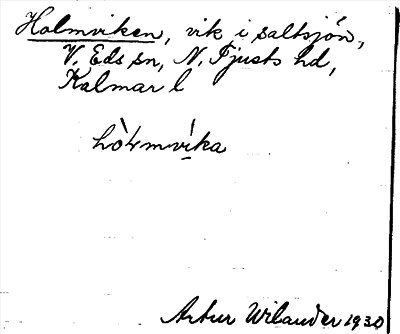 Holmviken, vik i saltsjön,
V. Eds sn, N. Tjusts hd,
Kalmar l
hò4mvi̱ka
Artur Wilander 1930